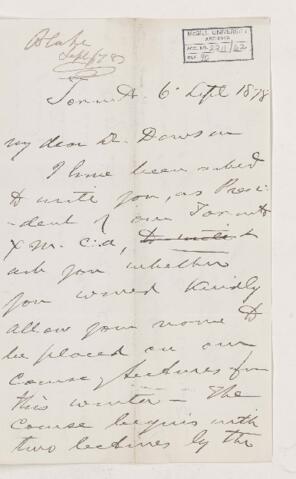 Blake
Sept 7/78
McGILL UNIVERSITY
ARCHIVES
ACC. NO. 2211/62
REF. 90
Toronto. 6. Sept 1878
My dear Dr. Dawson
I have been asked
to write you, as Presi-
-dent of our Toronto
Y.M.C.A, to invite to
ask you whether
you would kindly
allow your name to
be placed on our
course of lectures for
this winter — The
course begins with
two lectures by the